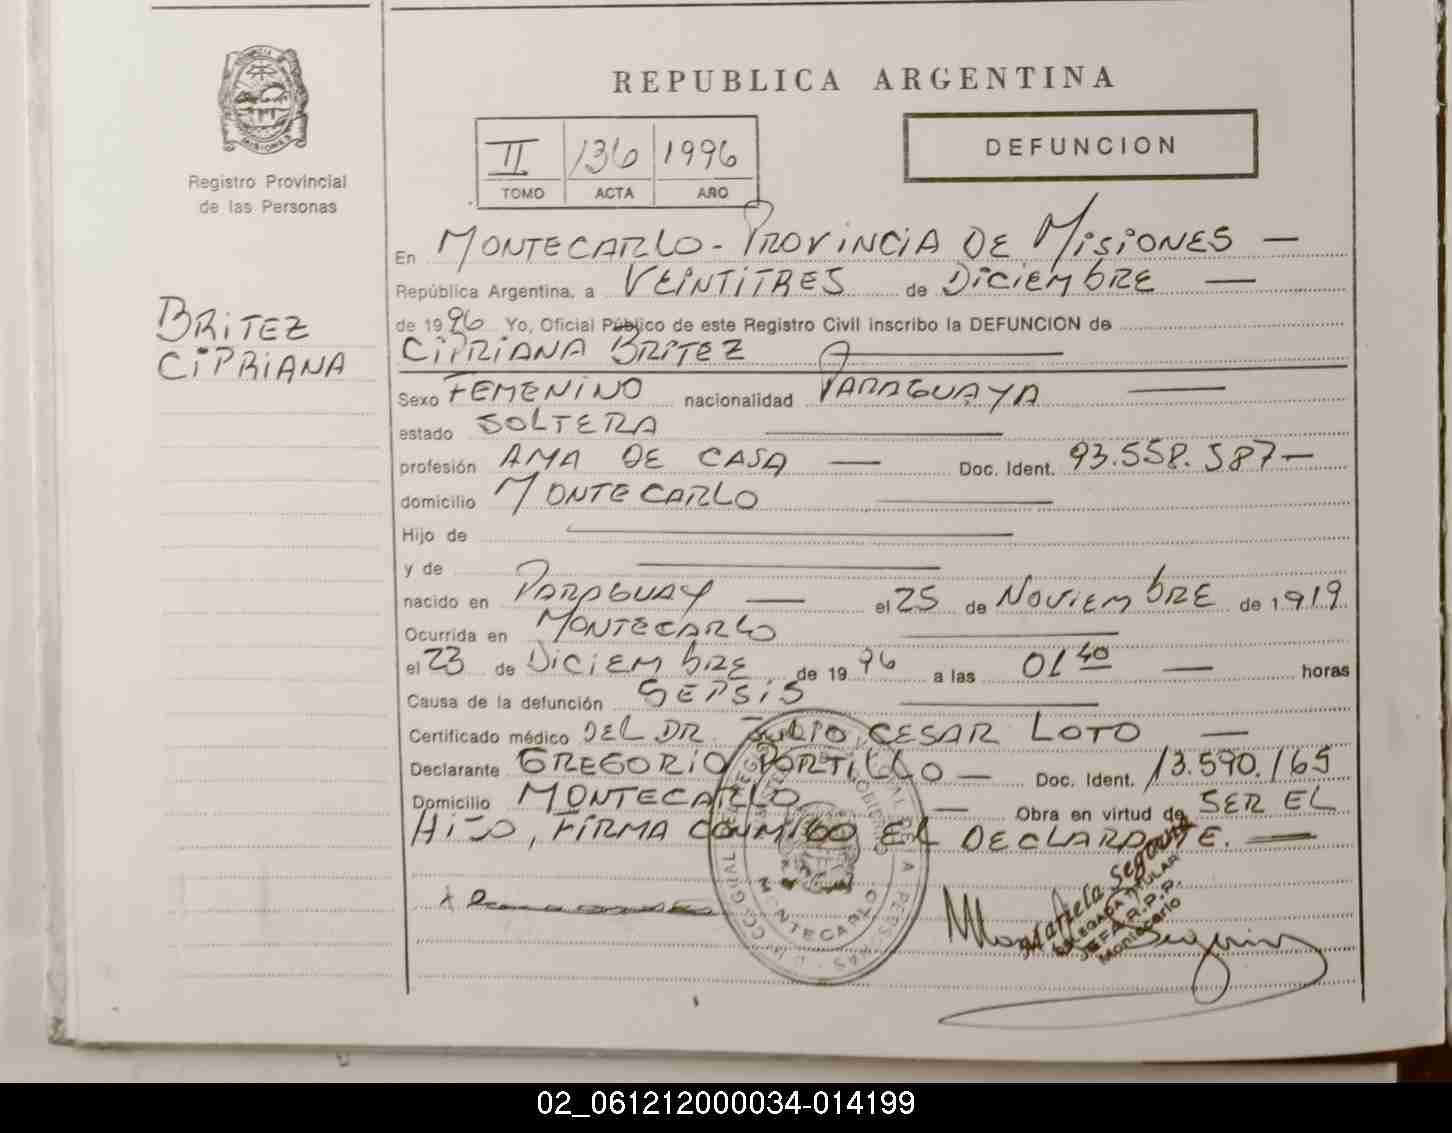 REPUBLICA ARGENTINA
MISIONES
Registro Provincial
de las Personas
II 136 1996
TOMO ACTA AÑO
DEFUNCION
BRITEZ
CIPRIANA
En MONTECARLO - PROVINCIA DE MISIONES —
República Argentina, a VEINTITRES de DICIEMBRE —
de 1996 Yo, Oficial Público de este Registro Civil inscribo la DEFUNCION de
CIPRIANA BRITEZ —
Sexo FEMENINO nacionalidad PARAGUAYA —
estado SOLTERA —
profesión AMA DE CASA — Doc. Ident. 93.558.587 —
domicilio MONTECARLO —
Hijo de —
y de —
nacido en PARAGUAY — el 25 de NOVIEMBRE de 1919
Ocurrida en MONTECARLO —
el 23 de DICIEMBRE de 1996 a las 01 40 — horas
Causa de la defunción SEPSIS —
Certificado médico DEL DR. JULIO CESAR LOTO —
Declarante GREGORIO PORTILLO — Doc. Ident. 13.590.165
Domicilio MONTECARLO — Obra en virtud de SER EL
HIJO, FIRMA CONMIGO EL DECLARANTE. —
MONTECARLO
DELEGADA TITULAR
JEFA R.P.P.
Montecarlo
02_061212000034-014199